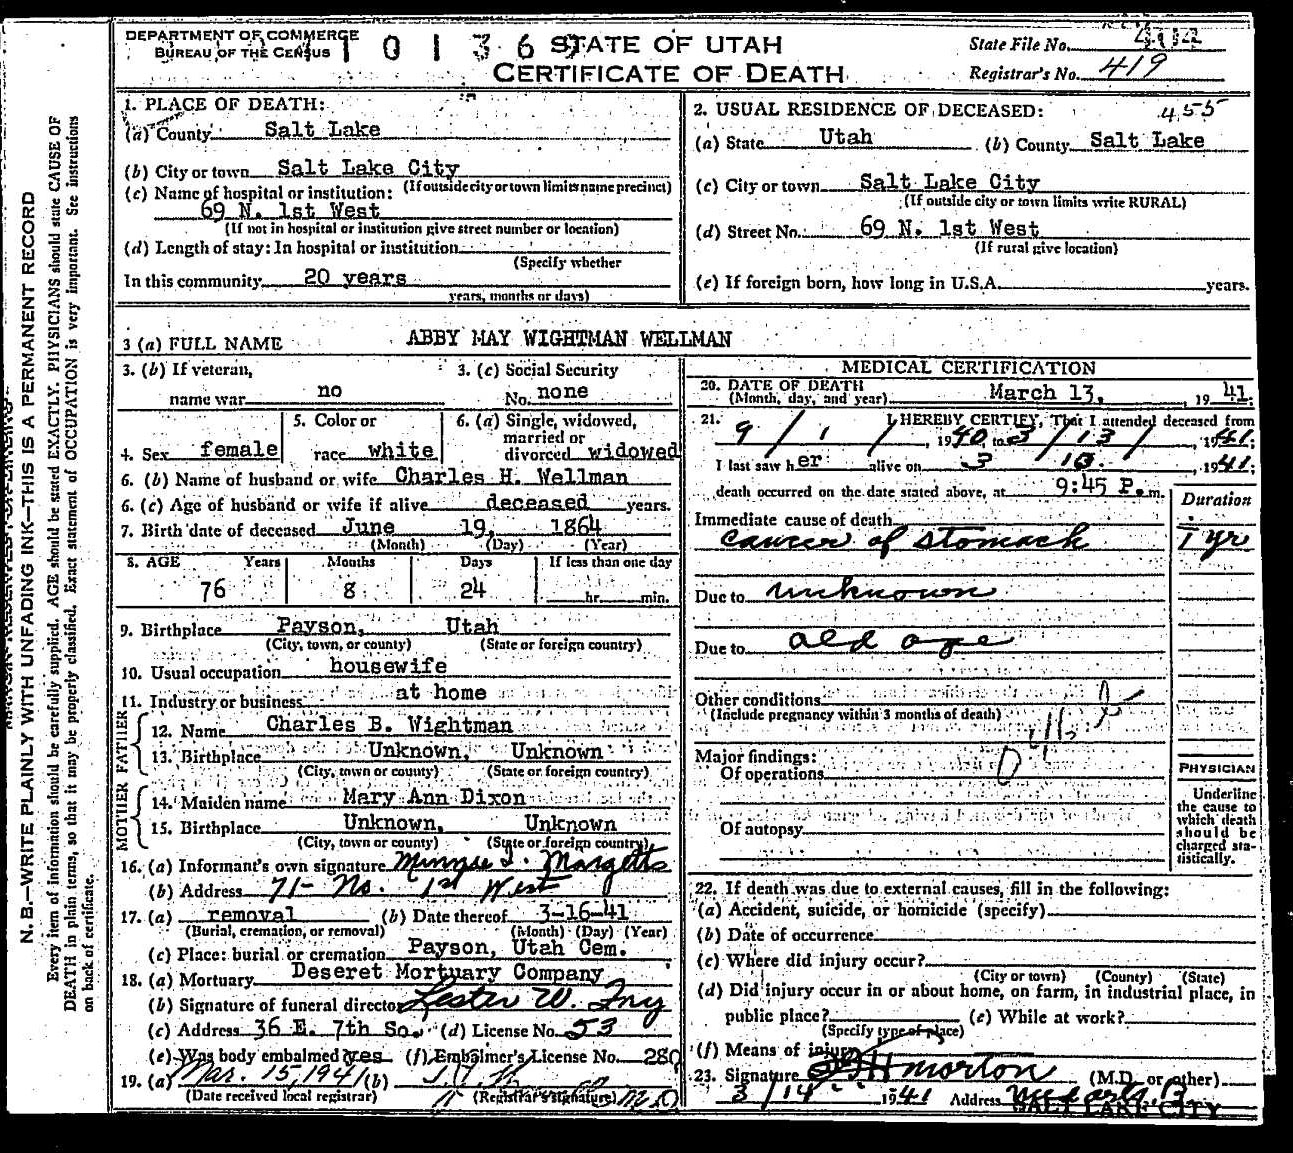 DEPARTMENT OF COMMERCE
BUREAU OF THE CENSUS
STATE OF UTAH
CERTIFICATE OF DEATH
State File No. 404
Registrar's No. 419
1. PLACE OF DEATH:
(a) County Salt Lake
(b) City or town Salt Lake City
(If outside city or town limits name precinct)
(c) Name of hospital or institution:
69 N. 1st West
(If not in hospital or institution give street number or location)
(d) Length of stay: In hospital or institution
(Specify whether
In this community 20 years
years, months or days)
2. USUAL RESIDENCE OF DECEASED: 455
(a) State Utah (b) County Salt Lake
(c) City or town Salt Lake City
(If outside city or town limits write RURAL)
(d) Street No. 69 N. 1st West
(If rural give location)
(e) If foreign born, how long in U.S.A. years.
3 (a) FULL NAME ABBY MAY WIGHTMAN WELLMAN
3. (b) If veteran, name war no
3. (c) Social Security No. none
4. Sex female
5. Color or race white
6. (a) Single, widowed, married or divorced widowed
6. (b) Name of husband or wife Charles H. Wellman
6. (c) Age of husband or wife if alive deceased years.
7. Birth date of deceased June 19, 1864
(Month) (Day) (Year)
8. AGE Years Months Days If less than one day
76 8 24 hr. min.
9. Birthplace Payson, Utah
(City, town, or county) (State or foreign country)
10. Usual occupation housewife
11. Industry or business at home
FATHER
12. Name Charles B. Wightman
13. Birthplace Unknown, Unknown
(City, town or county) (State or foreign country)
MOTHER
14. Maiden name Mary Ann Dixon
15. Birthplace Unknown, Unknown
(City, town or county) (State or foreign country)
16. (a) Informant's own signature Margetts
(b) Address 71- No. 1st West
17. (a) removal (b) Date thereof 3-16-41
(Burial, cremation, or removal) (Month) (Day) (Year)
(c) Place: burial or cremation Payson, Utah Cem.
18. (a) Mortuary Deseret Mortuary Company
(b) Signature of funeral director Lester W.
(c) Address 36 E. 7th So. (d) License No. 53
(e) Was body embalmed yes (f) Embalmer's License No. 280
19. (a) Mar. 15, 1941 (b) M.D.
(Date received local registrar) (Registrar's signature)
MEDICAL CERTIFICATION
20. DATE OF DEATH
(Month, day, and year) March 13, 1941;
21. I HEREBY CERTIFY, That I attended deceased from
9 / 1 / , 1940, to 3 / 13 / , 1941;
I last saw her alive on 3 13. , 1941;
death occurred on the date stated above, at 9:45 P. m.
Duration
Immediate cause of death
cancer of stomach 1 yr
Due to unknown
Due to old age
Other conditions
(Include pregnancy within 3 months of death)
Major findings:
Of operations
Of autopsy
PHYSICIAN
Underline
the cause to
which death
should be
charged sta-
tistically.
22. If death was due to external causes, fill in the following:
(a) Accident, suicide, or homicide (specify)
(b) Date of occurrence
(c) Where did injury occur?
(City or town) (County) (State)
(d) Did injury occur in or about home, on farm, in industrial place, in
public place? (e) While at work?
(Specify type of place)
(f) Means of injury
23. Signature Morton (M.D. or other)
3/14 1941 Address
SALT LAKE CITY
N. B.—WRITE PLAINLY WITH UNFADING INK—THIS IS A PERMANENT RECORD
Every item of information should be carefully supplied. AGE should be stated EXACTLY. PHYSICIANS should state CAUSE OF
DEATH in plain terms, so that it may be properly classified. Exact statement of OCCUPATION is very important. See instructions
on back of certificate.